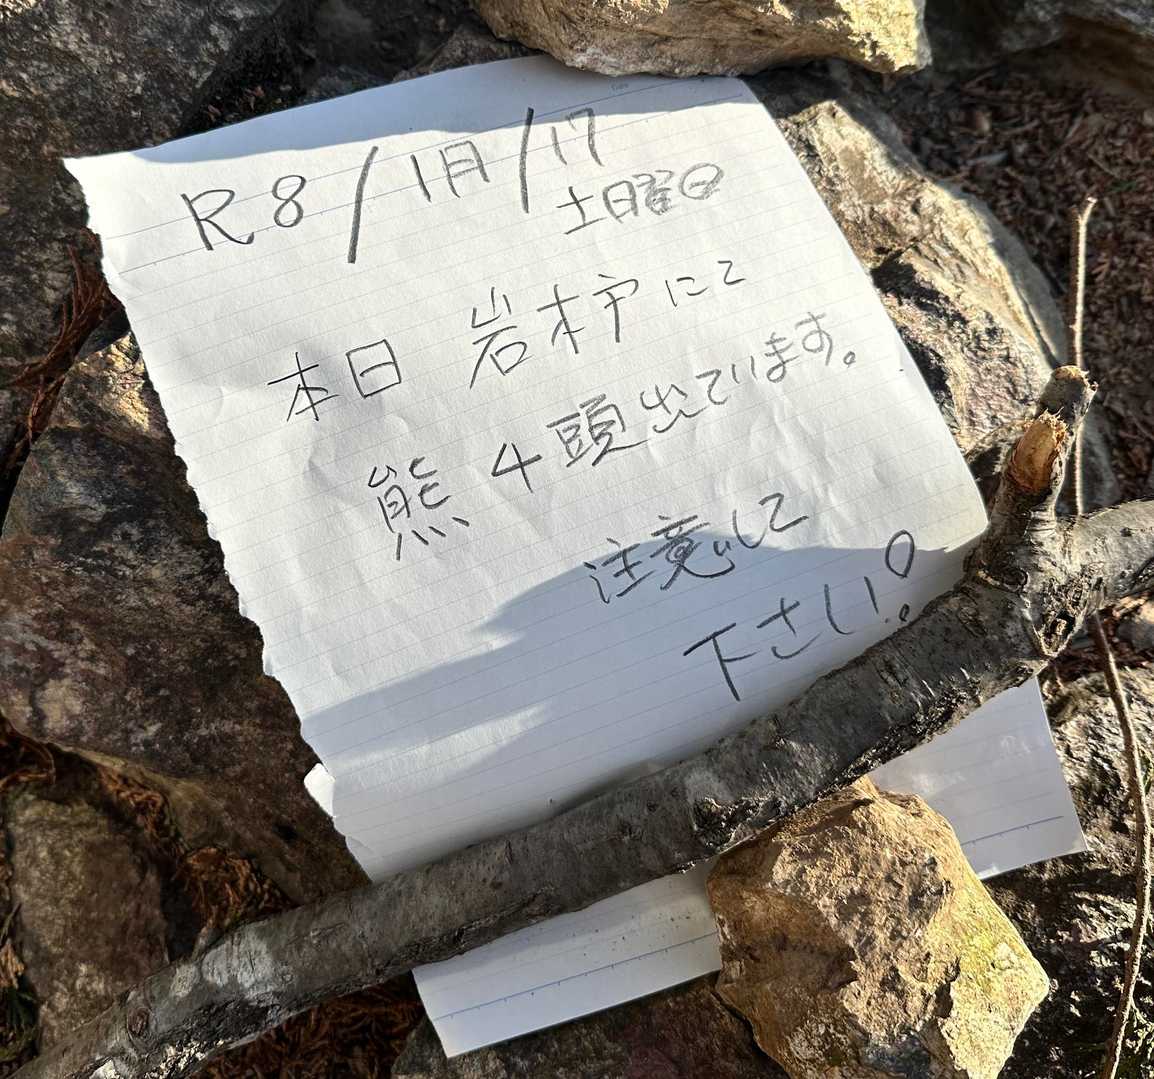 R8/1月/17
土曜日
本日 岩杦にて
熊 4頭出ています。
注意して
下さい!